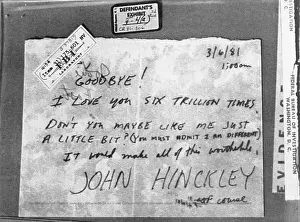 DEFENDANT'S
EXHIBIT
3/6/81
1:00am
GOODBYE!
I LOVE YOU SIX TRILLION TIMES.
DON'T YOU MAYBE LIKE ME JUST
A LITTLE BIT? (YOU MUST ADMIT I AM DIFFERENT)
IT would make all of this worthwhile
JOHN HINCKLEY
of course
EVIDENCE
FEDERAL BUREAU OF INVESTIGATION
WASHINGTON, D. C.